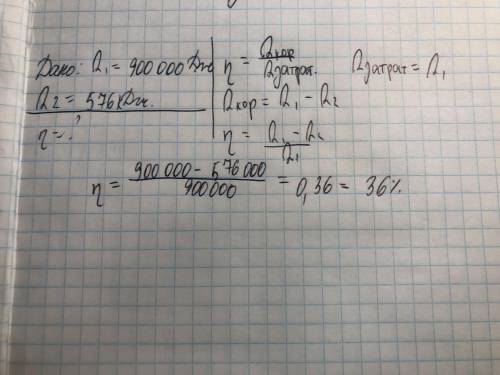 Дано: Q₁ = 900 000 Дж
Q₂ = 576 кДж.
η = ?
η = Qкор / Qзатрат. Qзатрат = Q₁
Qкор = Q₁ - Q₂
η = Q₁ - Q₂ / Q₁
η = 900 000 - 576 000 / 900 000 = 0,36 = 36%.